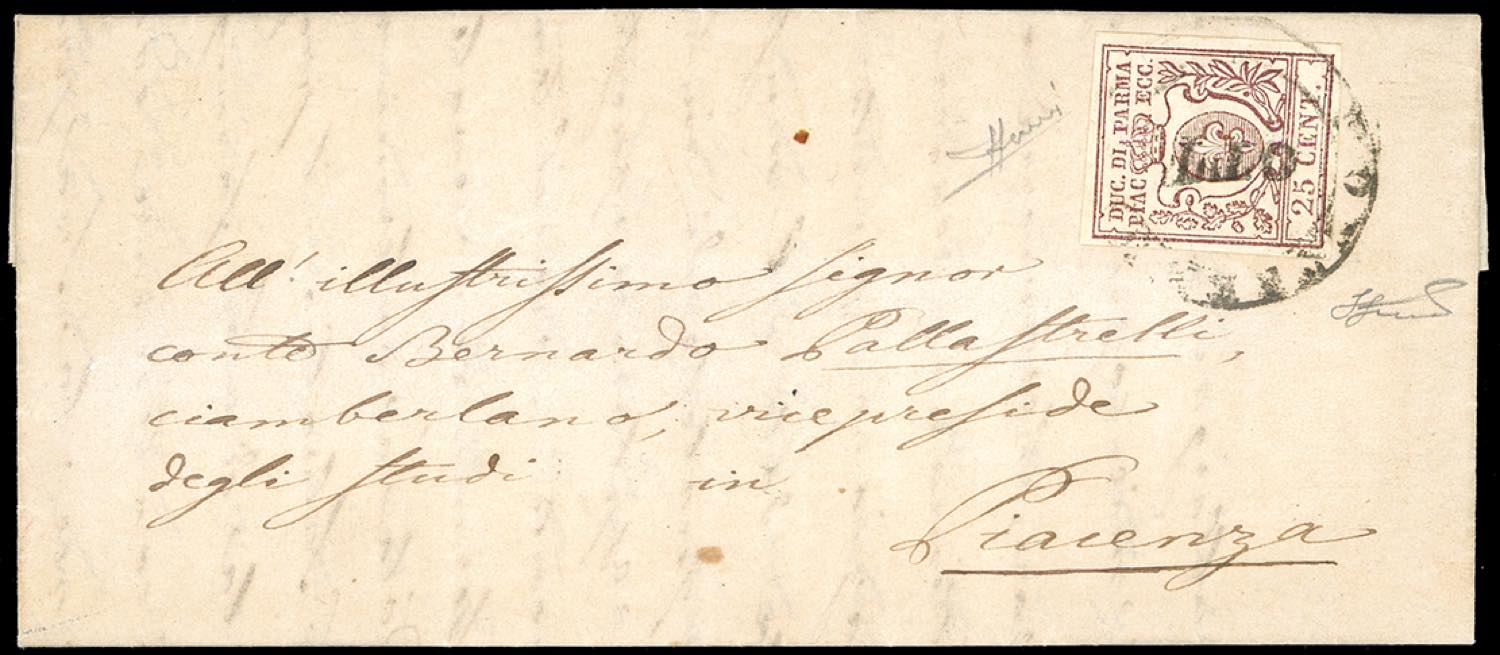 DUC. DI. PARMA
PIAC ECC.
25 CENT.
All' illustrissimo signor
conte Bernardo Pallastrelli,
ciamberlano, vicepreside
degli studi in
Piacenza